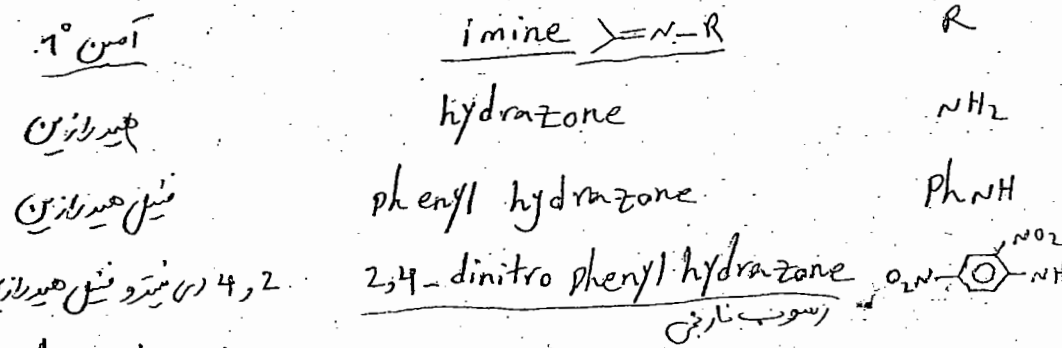 آمین 1° imine >=N-R R
هیدرازین hydrazone NH2
فنیل هیدرازین phenyl hydrazone PhNH
2,4 دی نیترو فنیل هیدراز 2,4-dinitro phenyl hydrazone O2N NO2 NH
رسوب نارنجی